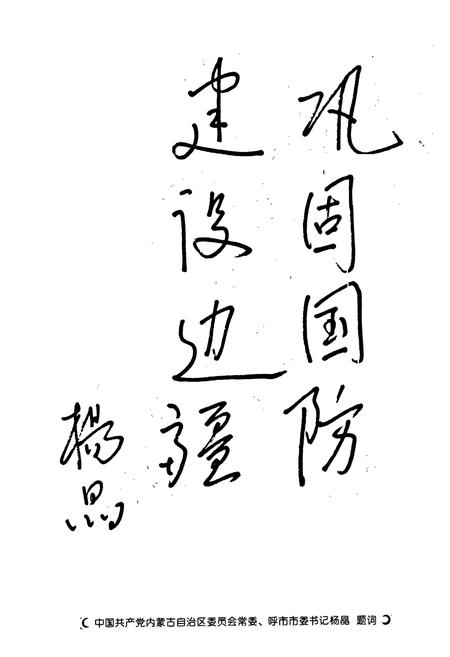 巩固国防
建设边疆
杨晶
中国共产党内蒙古自治区委员会常委、呼市市委书记杨晶 题词